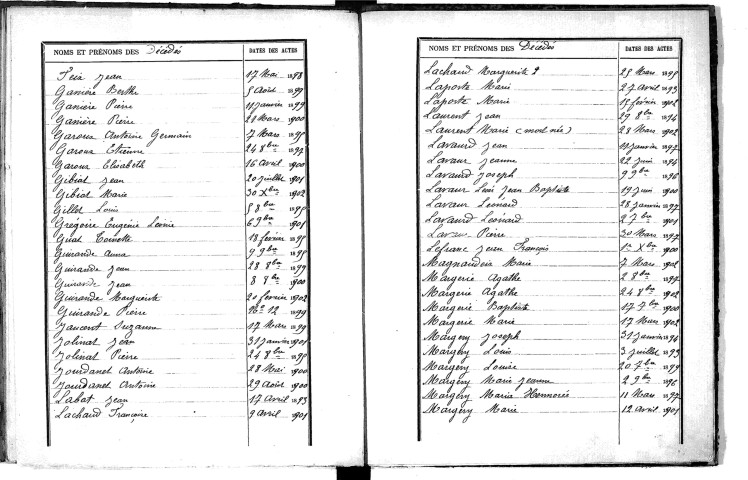 NOMS ET PRÉNOMS DES Décédés DATES DES ACTES
Feix Jean 17 Mai 1898
Ganière Berthe 5 Août 1897
Ganière Pierre 11 Janvier 1899
Ganière Pierre 28 Mars 1900
Garoux Antoine Germain 7 Mars 1895
Garoux Etienne 24 8bre 1897
Garoux Elisabeth 16 Avril 1900
Gibiat Jean 20 Juillet 1901
Gibiat Marie 30 Xbre 1902
Gillet Louis 5 8bre 1895
Grégoire Eugénie Léonie 6 9bre 1901
Gual Toinette 18 février 1895
Guirande Anna 9 9bre 1895
Guirande Jean 28 8bre 1899
Guirande Jean 8 8bre 1900
Guirande Marguerite 20 février 1902
Guirande Pierre 12 1899
Jaucent Suzanne 17 Mars 1899
Jolinat Jean 31 Janvier 1901
Jolinat Pierre 24 8bre 1895
Jourdanet Antoine 28 Mai 1900
Jourdanet Antoine 29 Août 1900
Labat Jean 17 Avril 1893
Lachaud Françoise 9 Avril 1901
NOMS ET PRÉNOMS DES Décédés DATES DES ACTES
Lachaud Marguerite 2 25 Mars 1895
Laporte Marie 27 Avril 1893
Laporte Marie 15 février 1902
Laurent Jean 29 8bre 1894
Laurent Marie (mort née) 28 Mars 1902
Lavaurd Jean Janvier 1897
Lavaur Jeanne 22 Juin 1894
Lavaurd Joseph 9 9bre 1896
Lavaur Léon Jean Baptiste 19 Juin 1900
Lavaur Léonard 28 Janvier 1897
Lavaurd Léonard 2 7bre 1901
Lavaur Pierre 30 Mars 1897
Lefranc Jean François 1er Xbre 1900
Magnandeix Marie 7 Mars 1902
Margerie Agathe 2 8bre 1895
Margerie Agathe 24 8bre 1902
Margerie Baptiste 17 7bre 1900
Margerie Marie 17 Mars 1902
Margery Joseph 31 Janvier 1894
Margery Louis 3 Juillet 1893
Margery Louise 20 7bre 1899
Margery Marie Jeanne 2 9bre 1896
Margery Marie Honnorée 11 Mars 1897
Margery Marie 12 Avril 1901